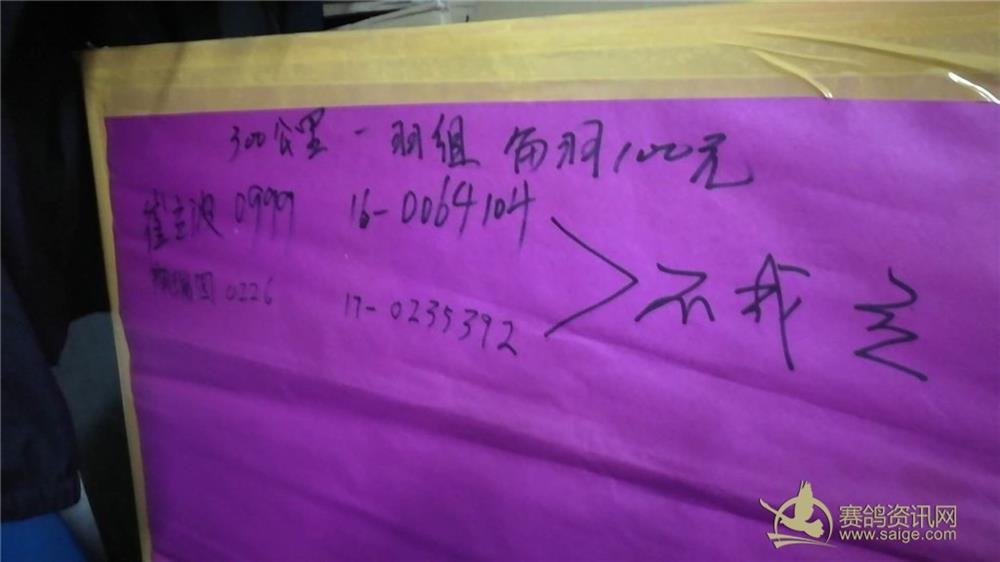 300公里 一羽组 每羽100元
崔立波 0999 16-0064104
国 0226 17-0235392
不找
赛鸽资讯网
www.saige.com